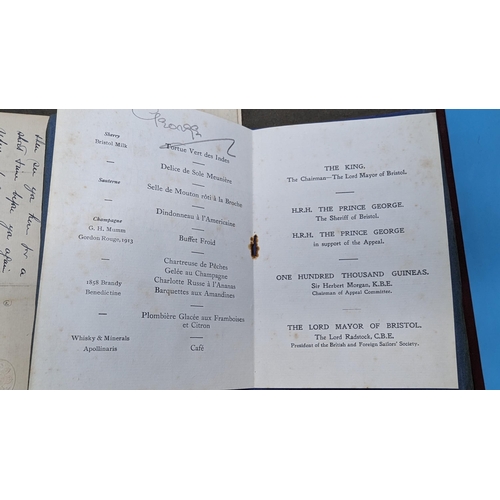 then see you here for a
short time before you again
George
Sherry
Bristol Milk
Tortue Vert des Indes
Delice de Sole Meunière
Sauterne
Selle de Mouton rôti à la Broche
Dindonneau à l'Americaine
Champagne
G. H. Mumm
Gordon Rouge, 1913
Buffet Froid
Chartreuse de Pêches
Gelée au Champagne
1858 Brandy
Charlotte Russe à l'Ananas
Benedictine
Barquettes aux Amandines
Plombière Glacée aux Framboises
et Citron
Whisky & Minerals
Apollinaris
Café
THE KING.
The Chairman—The Lord Mayor of Bristol.
H.R.H. THE PRINCE GEORGE.
The Sheriff of Bristol.
H.R.H. THE PRINCE GEORGE
in support of the Appeal.
ONE HUNDRED THOUSAND GUINEAS.
Sir Herbert Morgan, K.B.E.
Chairman of Appeal Committee.
THE LORD MAYOR OF BRISTOL.
The Lord Radstock, C.B.E.
President of the British and Foreign Sailors' Society.